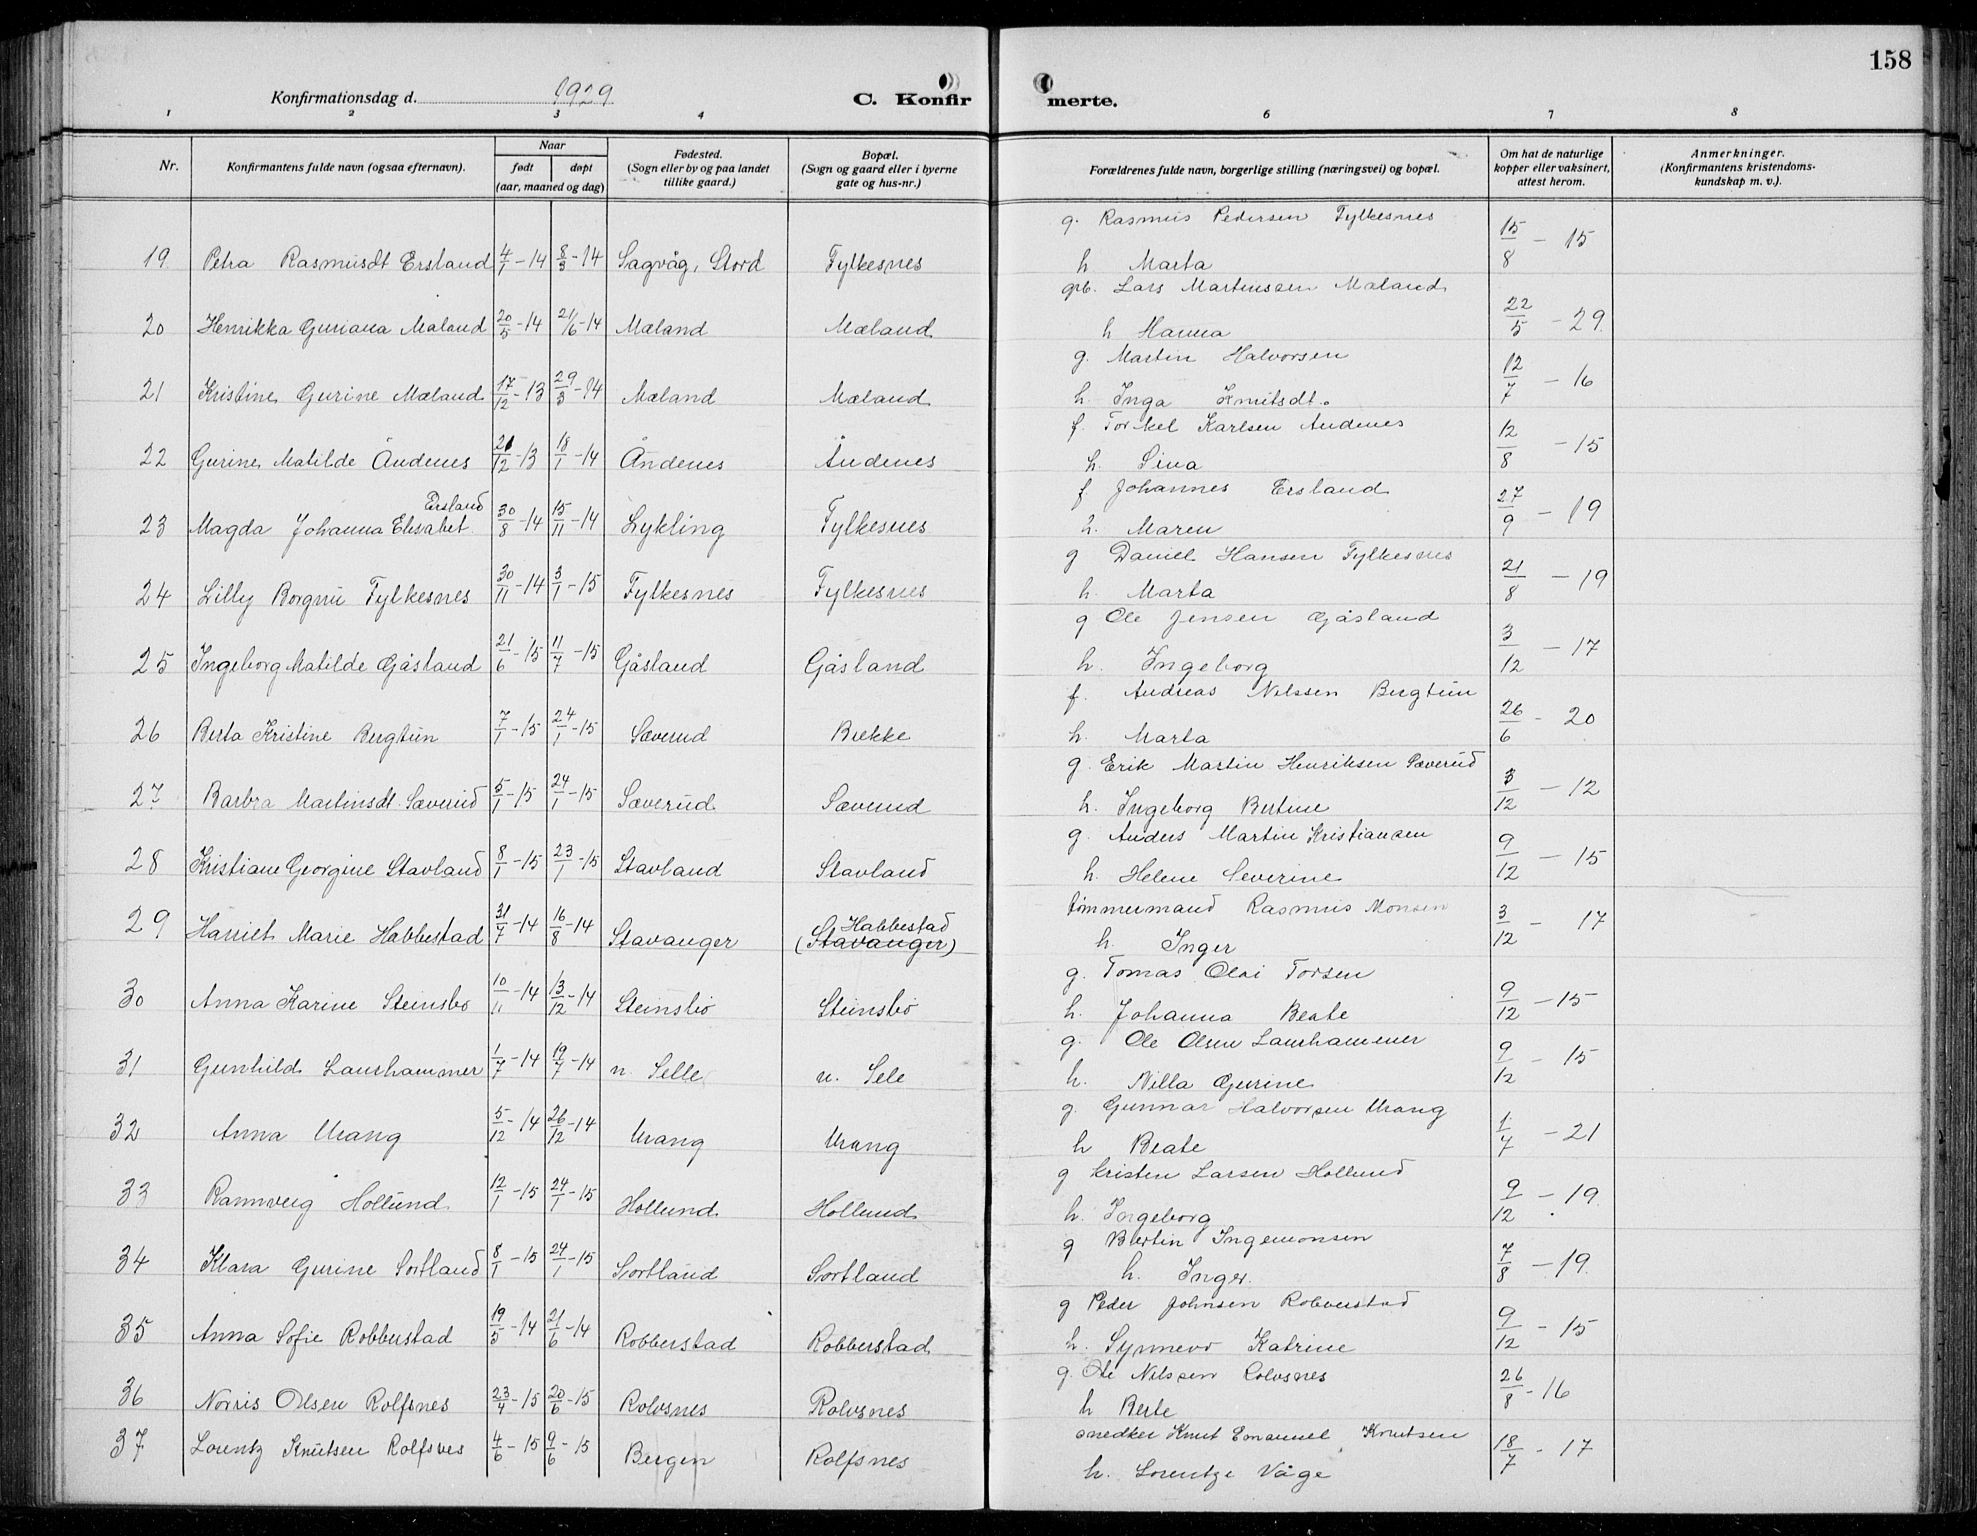 158
Konfirmationsdag d. 1929
C. Konfirmerte.
1 2 3 4 6 7 8
Nr.
Konfirmantens fulde navn (ogsaa efternavn).
Naar
født
døpt
(aar, maaned og dag)
Fødested.
(Sogn eller by og paa landet
tillike gaard.)
Bopæl.
(Sogn og gaard eller i byerne
gate og hus-nr.)
Forældrenes fulde navn, borgerlige stilling (næringsvei) og bopæl.
Om hat de naturlige
kopper eller vaksinert,
attest herom.
Anmerkninger.
(Konfirmantens kristendoms-
kundskap m. v.).
g. Rasmus Pedersen Fylkesnes
19 Petra Rasmusdt Ersland 4/1-14 8/3-14 Sagvåg, Stord Fylkesnes h Marta 15/8 - 15
grb. Lars Martinssen Mæland
20 Henrikka Guriana Mæland 20/5-14 21/6-14 Mæland Mæland h Hanna 22/5 - 29
g. Martin Halvorsen
21 Kristine Gurine Mæland 17/12-13 29/3-14 Mæland Mæland h. Inga Knutsdt. 12/7 - 16
f. Torkel Karlsen Andenes
22 Gurine Matilde Åndenes 21/12-13 18/1-14 Åndenes Åndenes h. Sina 12/8 - 15
f Johannes Ersland
23 Magda Johanna Elisabet Ersland 30/8-14 15/11-14 Lykling Fylkesnes h. Maren 27/9 - 19
g Daniel Hansen Fylkesnes
24 Lilly Borgni Fylkesnes 30/11-14 3/1-15 Fylkesnes Fylkesnes h. Marta 21/8 - 19
g Ole Jensen Gåsland
25 Ingeborg Matilde Gåsland 21/6-15 11/7-15 Gåsland Gåsland h. Ingeborg 3/12 - 17
f. Andreas Nilssen Bergtun
26 Berta Kristine Bergtun 7/1-15 24/1-15 Sæverud Bække h. Marta 26/6 - 20
g. Erik Martin Henriksen Sæverud
27 Barbra Martinsdt. Sæverud 5/1-15 24/1-15 Sæverud Sæverud h. Ingeborg Bertine 3/12 - 12
g. Anders Martin Kristiansen
28 Kristiane Georgine Stavland 8/1-15 23/1-15 Stavland Stavland h. Helene Severine 9/12 - 15
tømmermand Rasmus Monsen
29 Harriet Marie Habbestad 31/7-14 16/8-14 Stavanger Habbestad (Stavanger) h. Inger 3/12 - 17
g. Tomas Olai Torsen
30 Anna Karine Steinsbø 10/11-14 13/12-14 Steinsbø Steinsbø h. Johanna Beate 9/12 - 15
g. Ole Olsen Laurhammer
31 Gunhild Laurhammer 1/7-14 19/7-14 n. Selle n. Sele h. Nilla Gurine 9/12 - 15
g. Gunnar Halvorsen Urang
32 Anna Urang 5/12-14 26/12-14 Urang Urang h Beate 1/7 - 21
g Kristen Larsen Hollund
33 Rannveig Hollund 12/1-15 24/1-15 Hollund Hollund h. Ingeborg 9/12 - 19
g Bertin Ingemonsen
34 Klara Gurine Sortland 8/1-15 24/1-15 Sortland Sortland h. Inger. 7/8 - 19
g Peder Johnsen Robberstad
35 Anna Sofie Robberstad 19/5-14 21/6-14 Robberstad Robberstad h. Synnevø Katrine 9/12 - 15
g. Ole Nilssen Rolvsnes
36 Norris Olsen Rolfsnes 23/4-15 20/6-15 Rolvsnes Rolvsnes h Berte 26/8 - 16
snedker Knut Emanuel Knutsen
37 Lorentz Knutsen Rolfsves 4/6-15 9/6-15 Bergen Rolfsnes h. Lorentze Våge 18/7 - 17